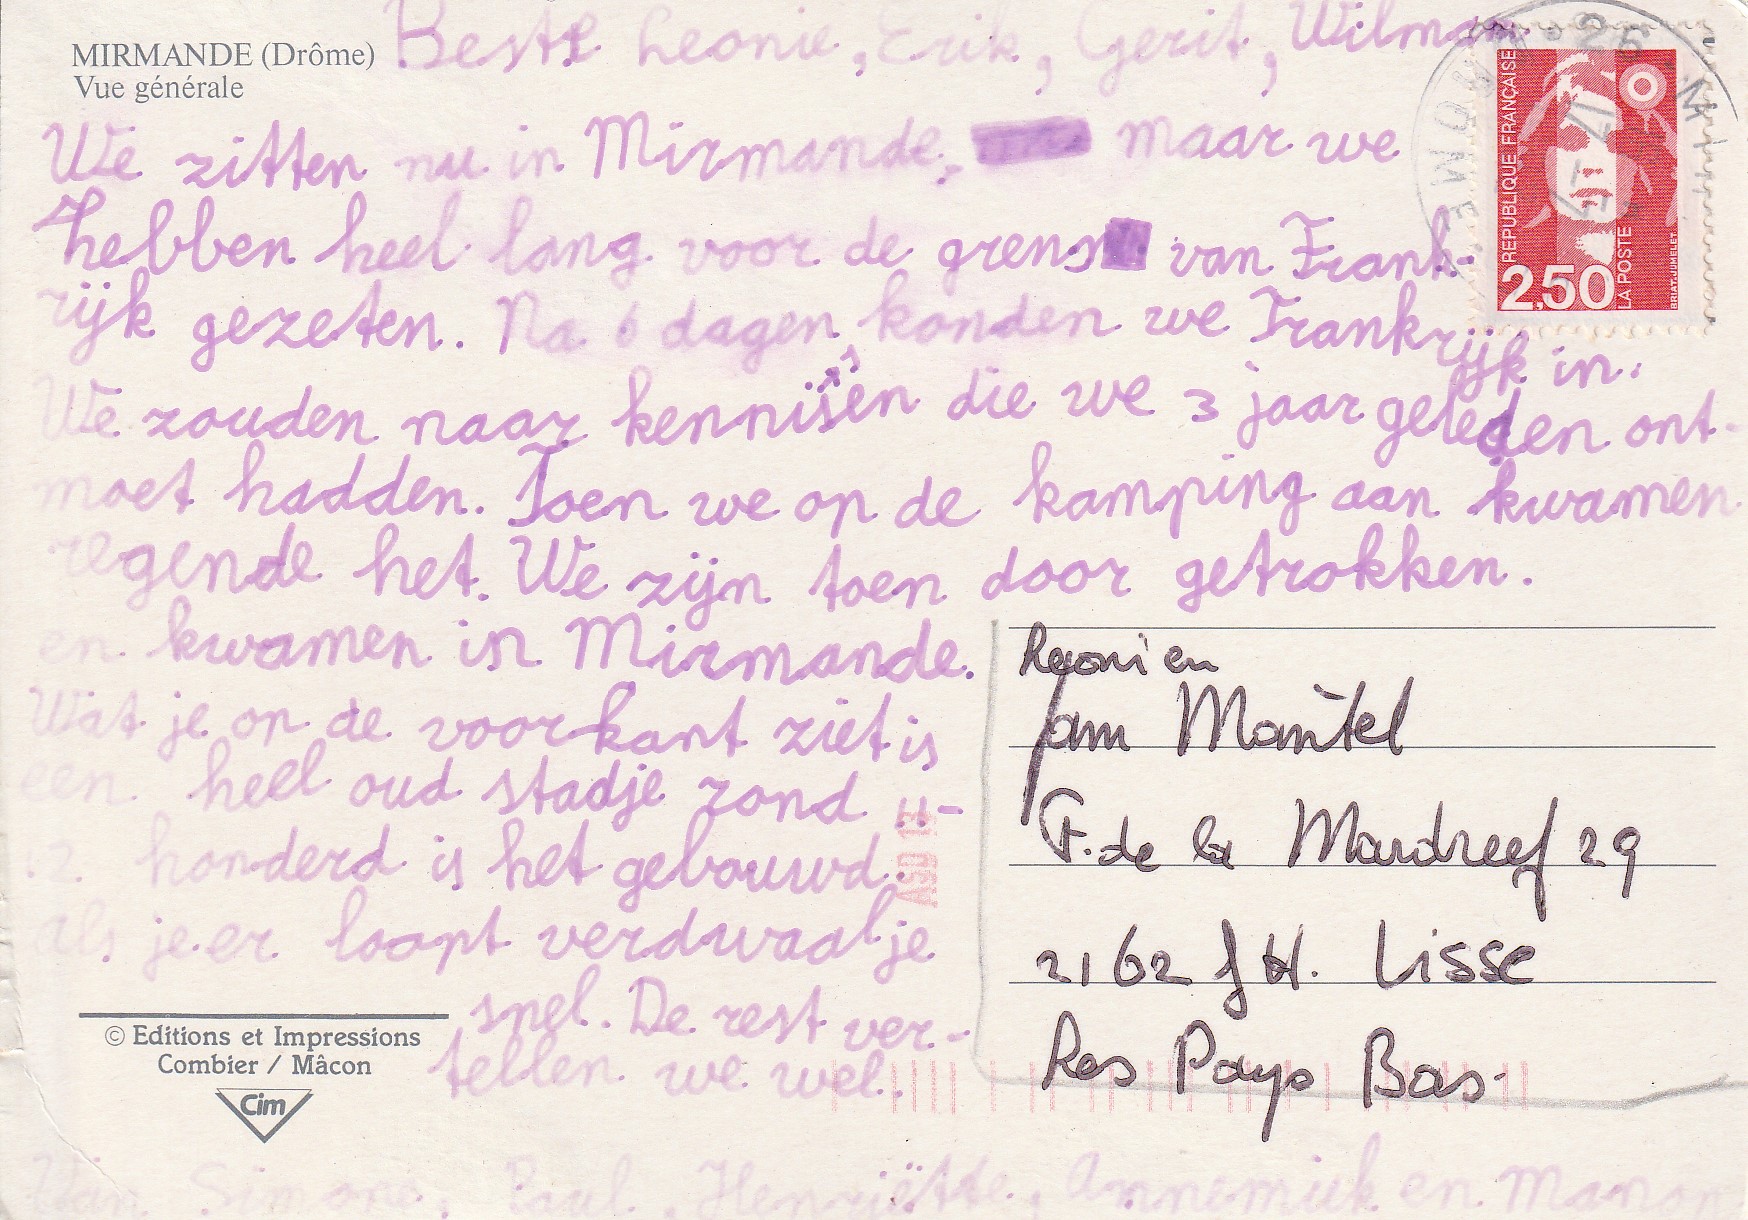 MIRMANDE (Drôme)
Vue générale
Beste Leonie, Erik, Gerit, Wilman
We zitten nu in Mirmande, maar we
hebben heel lang voor de grens van Frank-
rijk gezeten. Na 6 dagen konden we Frankrijk in.
We zouden naar kennissen die we 3 jaar geleden ont-
moet hadden. Toen we op de kamping aan kwamen
regende het. We zijn toen door getrokken.
en kwamen in Mirmande.
Wat je op de voorkant ziet is
een heel oud stadje rond
honderd is het gebouwd.
als je er loopt verdwaal je
snel. De rest ver-
tellen we wel.
Van Simone, Paul, Henriëtte, Annemiek en Manon
© Editions et Impressions
Combier / Mâcon
Cim
REPUBLIQUE FRANÇAISE
2,50
LA POSTE
BRIAT-JUMELET
Leoni en
Jam Mantel
F. de la Mardreef 29
2162 JH. Lisse
Les Pays Bas.